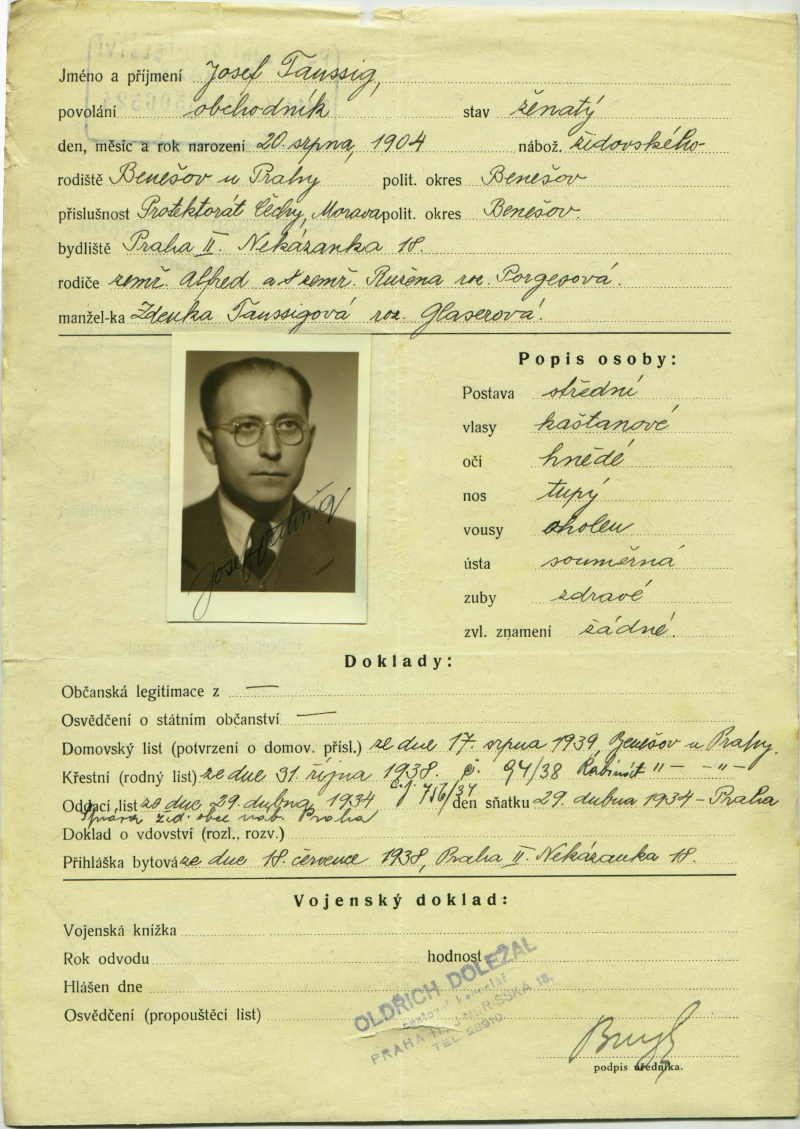 Jméno a příjmení Josef Taussig,
povolání obchodník stav ženatý
den, měsíc a rok narození 20. srpna, 1904 nábož. židovského
rodiště Benešov u Prahy polit. okres Benešov
příslušnost Protektorát Čechy, Morava polit. okres Benešov.
bydliště Praha II. Nekázanka 18.
rodiče zemř. Alfred a zemř.Ružena roz. Porgesová.
manžel-ka Zdenka Taussigová roz. Glaserová.
Popis osoby:
Postava střední
vlasy kaštanové
oči hnědé
nos tupý
vousy oholen
ústa souměrná
zuby zdravé
zvl. znamení žádné.
Josef Taussig
Doklady:
Občanská legitimace z —
Osvědčení o státním občanství —
Domovský list (potvrzení o domov. přísl.) ze dne 17. srpna 1939, Benešov u Prahy.
Křestní (rodný list) ze dne 31. října 1938. č. 94/38 Rabinát "– –"–
Oddací list ze dne 29. dubna 1934 č.j. 756/34 den sňatku 29. dubna 1934 – Praha
Správa žid. obce náb. Praha
Doklad o vdovství (rozl., rozv.)
Přihláška bytová ze dne 18. července 1938, Praha II. Nekázanka 18.
Vojenský doklad:
Vojenská knížka
Rok odvodu hodnost
Hlášen dne
Osvědčení (propouštěcí list)
OLDŘICH DOLEŽAL
PRAHA 18.
TEL.
podpis úředníka.